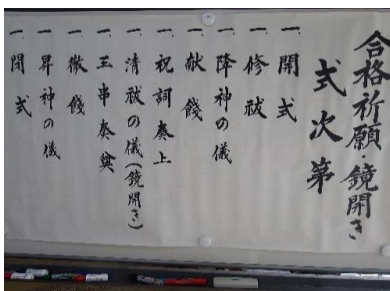 合格祈願・鏡開き
式次第
一 開式
一 修祓
一 降神の儀
一 献饌
一 祝詞奏上
一 清祓の儀(鏡開き)
一 玉串奏奠
一 徹饌
一 昇神の儀
一 閉式